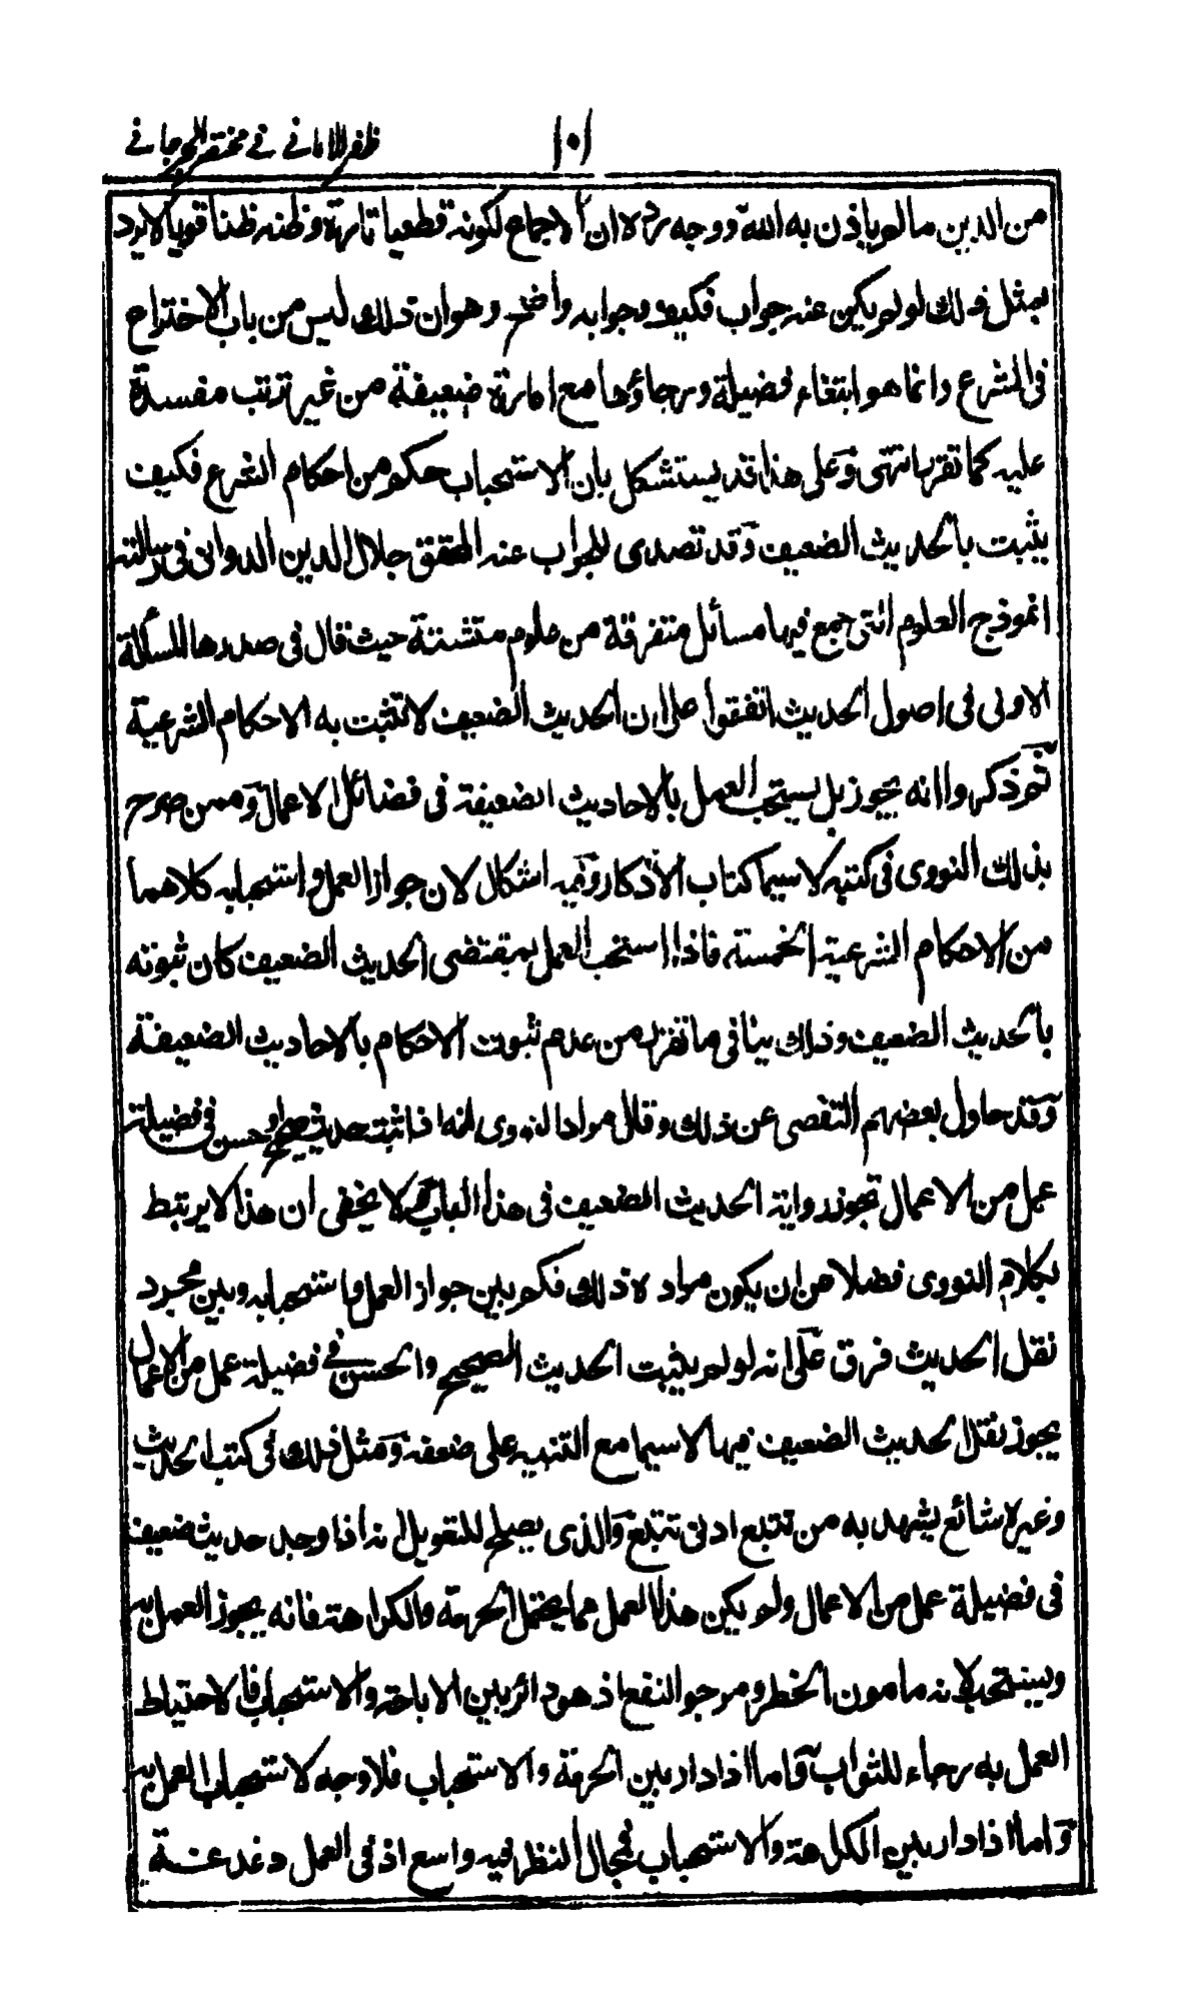 ١٠١ ظفر الاماني في مختصر الجرجاني
من الدين ما لم ياذن به الله ووجه رده ان الاجماع لكونه قطعيا تارة وظنه ظنا قويا لا يرد
بمثل ذلك لو لم يكن عنه جواب فكيف وجوابه واضح وهو ان ذلك ليس من باب الاختراع
فى الشرع وانما هو ابتغاء فضيلة ورجاؤها مع امارة ضعيفة من غير ترتب مفسدة
عليه كما تقرر انتهى وعلى هذا قد يستشكل بان الاستحباب حكم من احكام الشرع فكيف
يثبت بالحديث الضعيف وقد تصدى للجواب عنه المحقق جلال الدين الدوانى فى رسالته
انموذج العلوم التى جمع فيها مسائل متفرقة من علوم متشتتة حيث قال فى صدرها المسألة
الاولى فى اصول الحديث اتفقوا على ان الحديث الضعيف لا تثبت به الاحكام الشرعية
ثم ذكروا انه يجوز بل يستحب العمل بالاحاديث الضعيفة فى فضائل الاعمال وممن صرح
بذلك النووى فى كتبه لا سيما كتاب الاذكار وفيه اشكال لان جواز العمل واستحبابه كلاهما
من الاحكام الشرعية الخمسة فاذا استحب العمل بمقتضى الحديث الضعيف كان ثبوته
بالحديث الضعيف وذلك ينافى ما تقرر من عدم ثبوت الاحكام بالاحاديث الضعيفة
وقد حاول بعضهم التفصى عن ذلك وقال مراد النووى انه اذا ثبت حديث صحيح او حسن فى فضيلة
عمل من الاعمال تجوز رواية الحديث الضعيف فى هذا الباب ولا يخفى ان هذا لا يرتبط
بكلام النووى فضلا من ان يكون مراده ذلك فكم بين جواز العمل واستحبابه وبين مجرد
نقل الحديث فرق على انه لو لم يثبت الحديث الصحيح والحسن فى فضيلة عمل من الاعمال
يجوز نقل الحديث الضعيف فيها لا سيما مع التنبيه على ضعفه ومثل ذلك فى كتب الحديث
وغيره شائع يشهد به من تتبع ادنى تتبع والذى يصلح للتعويل انه اذا وجد حديث ضعيف
فى فضيلة عمل من الاعمال ولم يكن هذا العمل مما يحتمل الحرمة والكراهة فانه يجوز العمل به
ويستحب لانه مامون الخطر ومرجو النفع اذ هو دائر بين الاباحة والاستحباب فالاحتياط
العمل به رجاء للثواب واما اذا دار بين الحرمة والاستحباب فلا وجه لاستحباب العمل به
واما اذا دار بين الكراهة والاستحباب فمجال النظر فيه واسع اذ فى العمل دغدغة